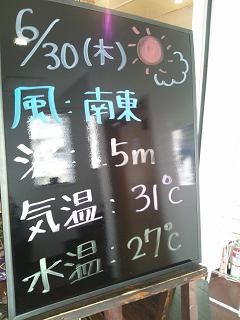 6/30(木)
風:南東
波:1.5m
気温:31℃
水温:27℃